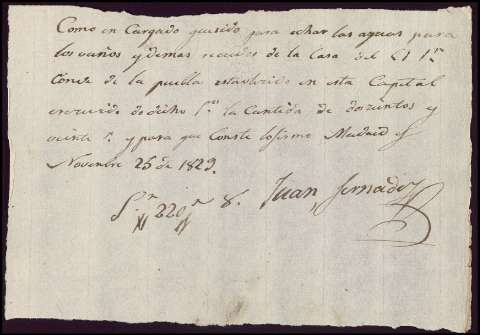 Como en Cargado que sido para echar las aguas para
los vaños y demas de la Casa del Sr
Conde de la puebla establesido en esta Capital
e recivido de dicho Sr la Cantida de dosientos y
veinte r. y para que Conste lo firmo Madrid
Novienbre 25 de 1829.
Son 220 r v. Juan Fernadez